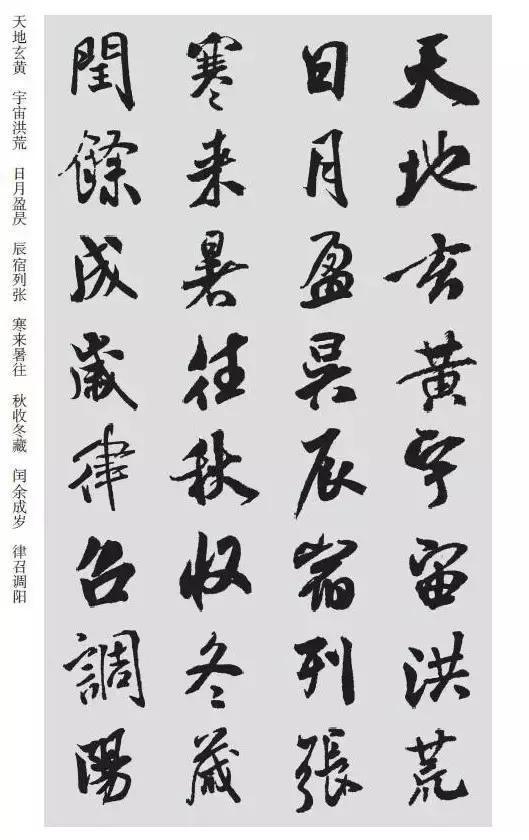 天地玄黄宇宙洪荒
日月盈昃辰宿列張
寒来暑往秋收冬藏
閏餘成歲律召調陽
天地玄黄 宇宙洪荒 日月盈昃 辰宿列张 寒来暑往 秋收冬藏 闰余成岁 律召调阳